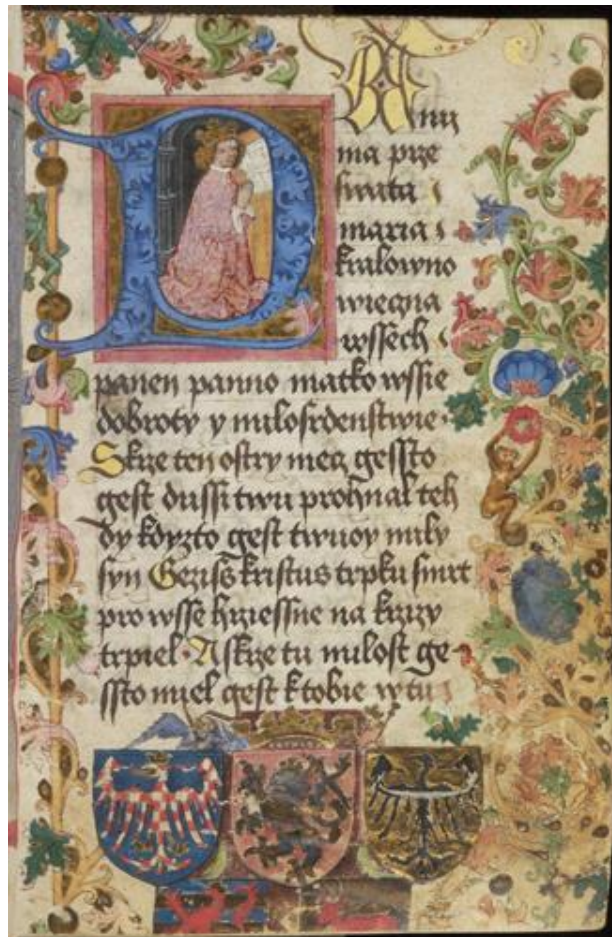 DAny
ma prze
swata
maria
kralowno
wieczna
wssech
panen panno matko wssie
dobroty y milosrdenstwie
Skrze ten ostry mecz gessto
gest dussi twu prohnal teh
dy kdyzto gest twuoy mily
syn Geziss kristus trpku smrt
pro wsse hrziessne na krzizy
trpiel A skrze tu milost ge
ssto miel gest k tobie w tu